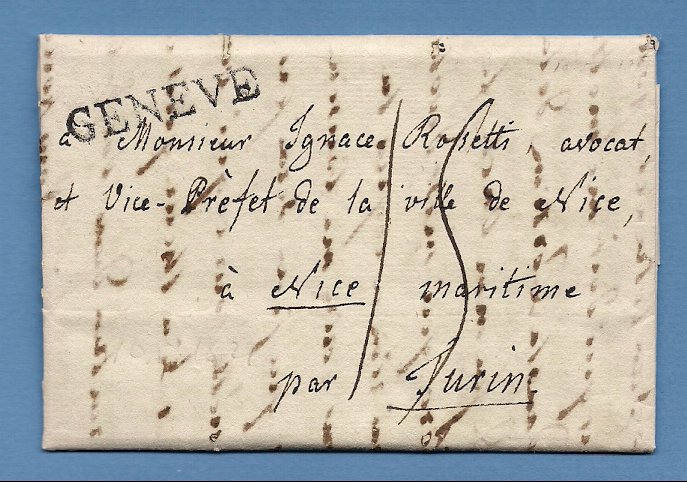 GENEVE
à Monsieur Ignace Rossetti, avocat,
et Vice-Prèfet de la ville de Nice,
à Nice maritime
par Turin.
15